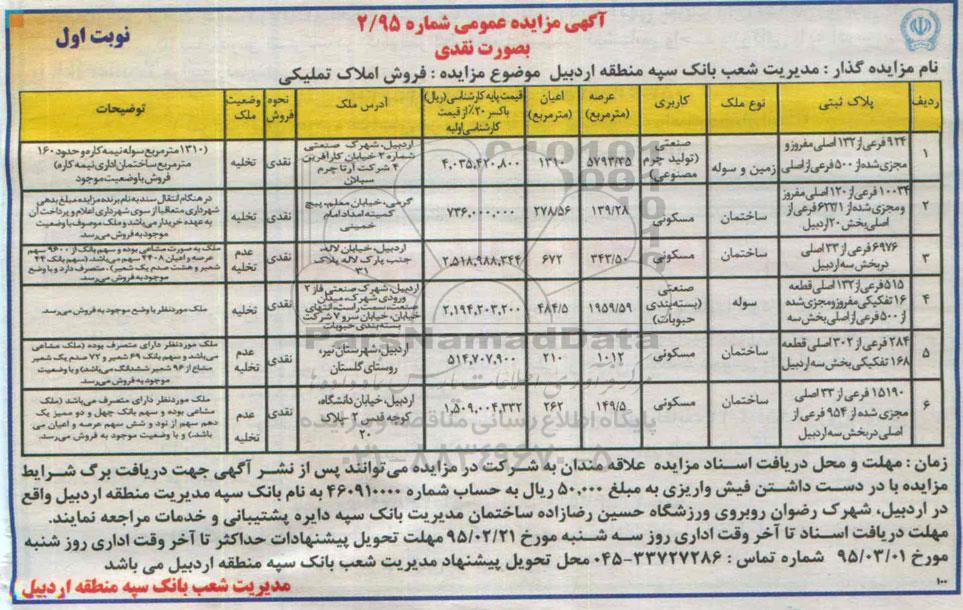 آگهی مزایده عمومی شماره ۲/۹۵
بصورت نقدی
نوبت اول
نام مزایده گذار : مدیریت شعب بانک سپه منطقه اردبیل موضوع مزایده : فروش املاک تملیکی
ردیف
پلاک ثبتی
نوع ملک
کاربری
عرصه (مترمربع)
اعیان (مترمربع)
قیمت پایه کارشناسی (ریال)
باکسر ۲۰٪ از قیمت
کارشناسی اولیه
آدرس ملک
نحوه فروش
وضعیت ملک
توضیحات
۱
۹۲۴ فرعی از ۱۳۲ اصلی مفروز و
مجزی شده از ۵۰۰ فرعی از اصلی
زمین و سوله
صنعتی
(تولید چرم
مصنوعی)
۵۷۹۳/۳۵
۱۳۱۰
۴,۰۳۵,۴۲۰,۸۰۰
اردبیل، شهرک صنعتی
شماره ۲ خیابان کارآفرین
۴ شرکت آرتا چرم
سبلان
نقدی
تخلیه
(۱۳۱۰ مترمربع سوله نیمه کاره و حدود ۱۶۰
مترمربع ساختمان اداری نیمه کاره)
فروش با وضعیت موجود
۲
۱۰۰۳۴ فرعی از ۱۲۰ اصلی مفروز
و مجزی شده از ۶۲۳/۱ فرعی از
اصلی بخش ۲۰ اردبیل
ساختمان
مسکونی
۱۳۹/۲۸
۲۷۸/۵۶
۷۳۶,۰۰۰,۰۰۰
گرمی، خیابان معلم، پیچ
کمیته امداد امام
خمینی
نقدی
تخلیه
در هنگام انتقال سند به نام برنده مزایده مبلغ بدهی
شهرداری متعاقبا از سوی شهرداری اعلام و پرداخت آن
به عهده خریدار می‌باشد و ملک موصوف با وضعیت
موجود به فروش می‌رسد.
۳
۶۹۷۶ فرعی از ۳۳ اصلی
در بخش سه اردبیل
ساختمان
مسکونی
۳۴۲/۵۰
۶۷۲
۲,۵۱۸,۹۸۸,۳۴۴
اردبیل، خیابان لاله،
جنب پارک لاله پلاک
۳۱
نقدی
عدم
تخلیه
ملک به صورت مشاعی بوده و سهم بانک از ۹۶۰۰ سهم
عرصه و اعیان ۴۴۰۸ سهم می‌باشد. (سهم بانک ۴۴
شعیر و هشت صدم یک شعیر)، متصرف دارد و با وضع
موجود به فروش می‌رسد.
۴
۵۱۵ فرعی از ۱۳۲ اصلی قطعه
۱۶ تفکیکی مفروز و مجزی شده
از ۵۰۰ فرعی از اصلی بخش سه
سوله
صنعتی
(بسته‌بندی
حبوبات)
۱۹۵۹/۵۹
۴۸۴/۵
۳,۱۹۴,۲۰۳,۲۰۰
اردبیل، شهرک صنعتی فاز ۲
ورودی شهرک، میدان
سمت راست، انتهای
خیابان، خیابان سرو ۷ شرکت
بسته‌بندی حبوبات
نقدی
تخلیه
ملک موردنظر با وضع موجود به فروش می‌رسد.
۵
۲۸۴ فرعی از ۳۰۲ اصلی قطعه
۱۶۸ تفکیکی بخش سه اردبیل
ساختمان
مسکونی
۱۰۱۲
۲۱۰
۵۱۴,۷۰۷,۹۰۰
اردبیل، شهرستان نیر،
روستای گلستان
نقدی
عدم
تخلیه
ملک موردنظر دارای متصرف بوده (ملک مشاعی
می‌باشد و سهم بانک ۶۹ شعیر و ۷۲ صدم یک شعیر
مشاع از ۹۶ شعیر ششدانگ می‌باشد) و با وضعیت
موجود به فروش می‌رسد.
۶
۱۵۱۹۰ فرعی از ۳۳ اصلی
مجزی شده از ۹۵۴ فرعی از
اصلی در بخش سه اردبیل
ساختمان
مسکونی
۱۴۹/۵
۲۶۲
۱,۵۰۹,۰۰۴,۳۳۲
اردبیل، خیابان دانشگاه،
کوچه قدس ۲ پلاک
۲۰
نقدی
عدم
تخلیه
ملک موردنظر دارای متصرف می‌باشد (ملک
مشاعی بوده و سهم بانک چهل و دو ممیز یک
دهم سهم از نود و شش سهم عرصه و اعیان می
باشد) و با وضعیت موجود به فروش می‌رسد.
ParsNamadData
پایگاه اطلاع رسانی مناقصه و مزایده
۰۲۱-۸۸۳۴۹۶۷۰-۵
زمان : مهلت و محل دریافت اسناد مزایده علاقه مندان به شرکت در مزایده می‌توانند پس از نشر آگهی جهت دریافت برگ شرایط
مزایده با در دست داشتن فیش واریزی به مبلغ ۵۰,۰۰۰ ریال به حساب شماره ۴۶۰۹۱۰۰۰۰ به نام بانک سپه مدیریت منطقه اردبیل واقع
در اردبیل، شهرک رضوان روبروی ورزشگاه حسین رضازاده ساختمان مدیریت بانک سپه دایره پشتیبانی و خدمات مراجعه نمایند.
مهلت دریافت اسناد تا آخر وقت اداری روز سه شنبه مورخ ۹۵/۰۲/۲۱ مهلت تحویل پیشنهادات حداکثر تا آخر وقت اداری روز شنبه
مورخ ۹۵/۰۳/۰۱ شماره تماس : ۰۴۵-۳۳۷۲۷۲۸۶ محل تحویل پیشنهاد مدیریت شعب بانک سپه منطقه اردبیل می باشد
۱۰۰
مدیریت شعب بانک سپه منطقه اردبیل